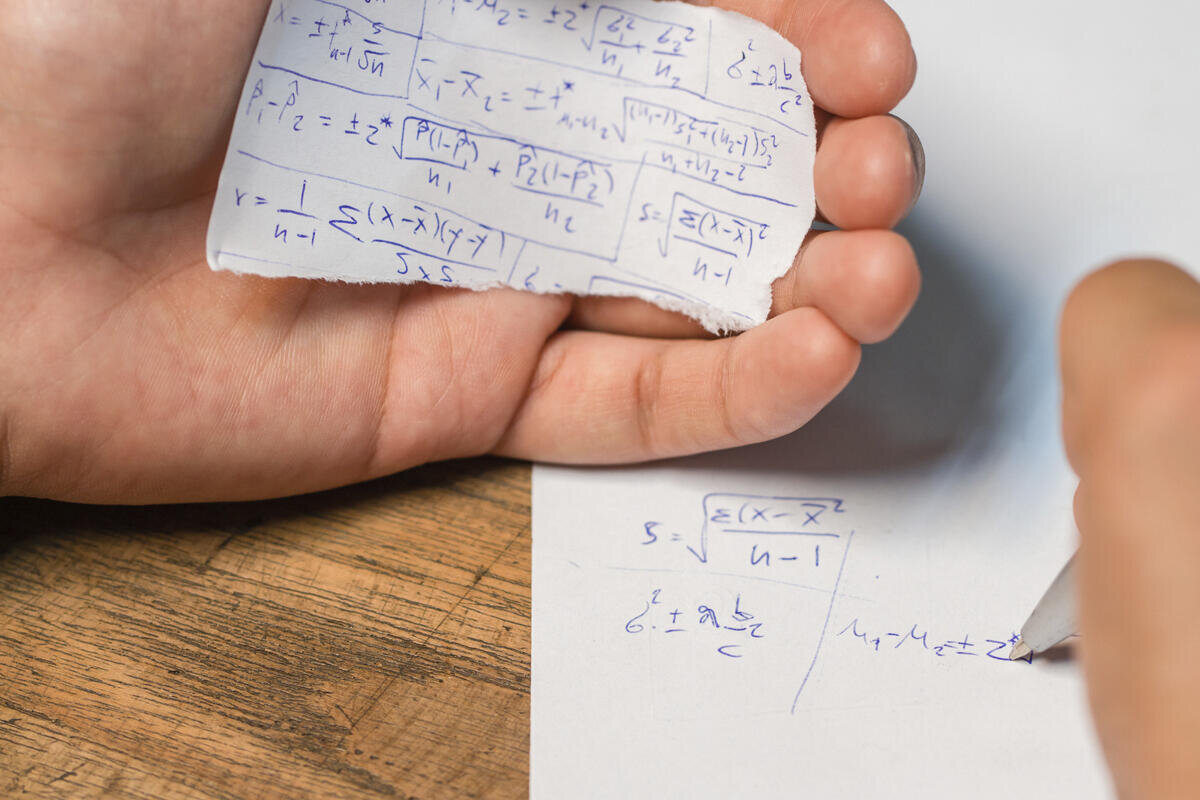 x̄ = ± t* n-1 s/√n
μ₂ = ± z* √(σ₁²/n₁ + σ₂²/n₂)
x̄₁ - x̄₂ = ± t* n₁-n₂ √((n₁-1)s₁²+(n₂-1)s₂² / n₁+n₂-2)
p̂₁ - p̂₂ = ± z* √(p̂(1-p̂₁)/n₁ + p̂₂(1-p̂₂)/n₂)
r = 1/n-1 Σ(x-x̄)(y-ȳ)/SxS
S = √(Σ(x-x̄)²/n-1)
S = √(Σ(x-x̄²/n-1)
μ₁-μ₂=± z*